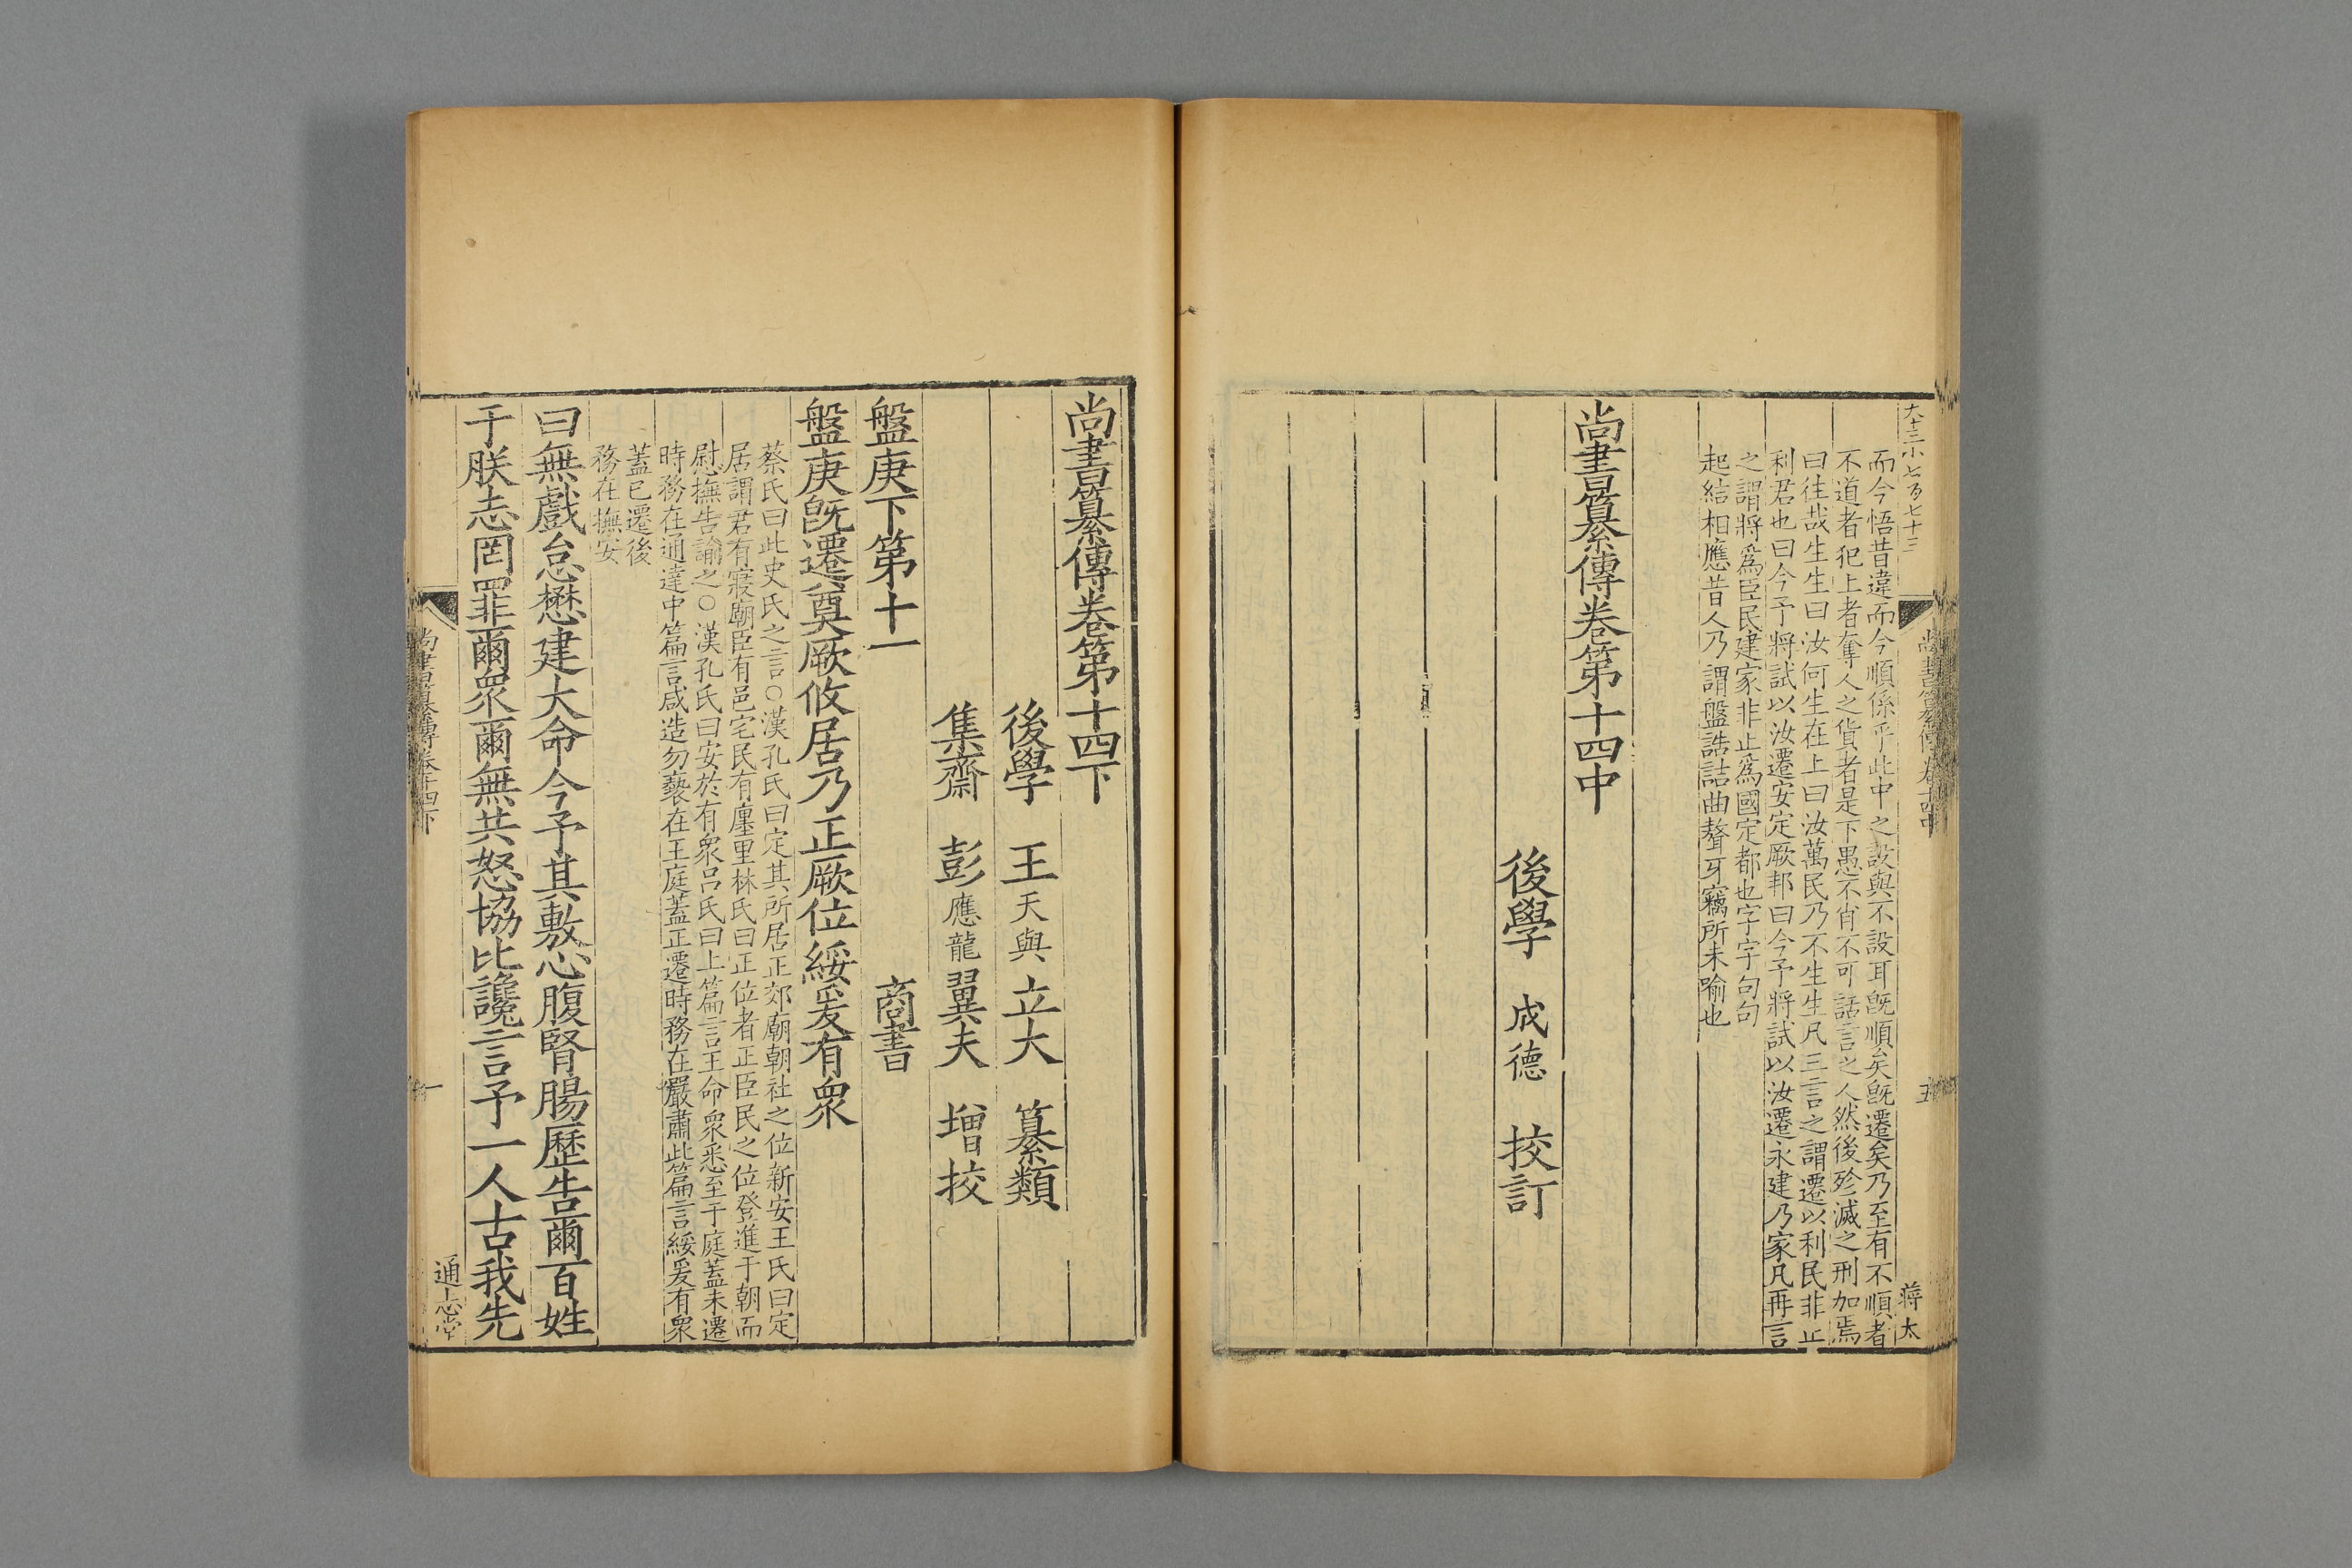 大十三小七百七十三
蔣太
而今悟昔違而今順係乎此中之設與不設耳旣順矣旣遷矣乃至有不順者
不道者犯上者奪人之貨者是下愚不肖不可話言之人然後殄滅之刑加焉
曰往哉生生曰汝何生在上曰汝萬民乃不生生凡三言之謂遷以利民非止
利君也曰今予將試以汝遷安定厥邦曰今予將試以汝遷永建乃家凡再言
之謂將爲臣民建家非止爲國定都也字字句句
起結相應昔人乃謂盤誥詰曲聱牙竊所未喻也
尚書纂傳卷第十四中
後學 成德 挍訂
尚書纂傳卷第十四下
後學 王天與立大 纂類
集齋 彭應龍翼夫 增挍
盤庚下第十一 商書
盤庚旣遷奠厥攸居乃正厥位綏爰有衆
蔡氏曰此史氏之言○漢孔氏曰定其所居正郊廟朝社之位新安王氏曰定
居謂君有寢廟臣有邑宅民有廛里林氏曰正位者正臣民之位登進于朝而
慰撫告諭之○漢孔氏曰安於有衆呂氏曰上篇言王命衆悉至于庭蓋未遷
時務在通達中篇言咸造勿褻在王庭蓋正遷時務在嚴肅此篇言綏爰有衆
蓋已遷後
務在撫安
曰無戲怠懋建大命今予其敷心腹腎腸歷告爾百姓
于朕志罔罪爾衆爾無共怒協比讒言予一人古我先
尚書纂傳卷十四下
一
通志堂